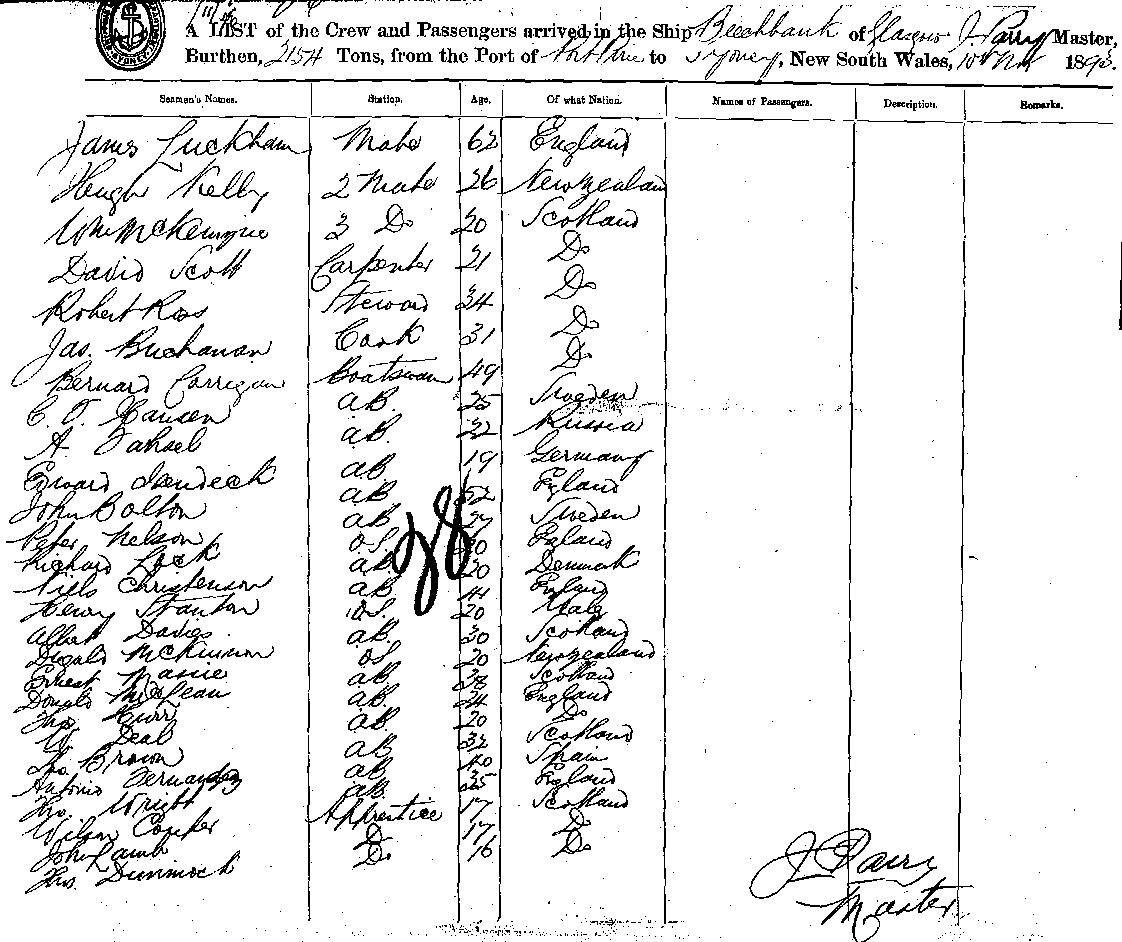 A LIST of the Crew and Passengers arrived in the Ship Beechbank of Glasgow J. Parry Master,
Burthen, 2154 Tons, from the Port of to Sydney, New South Wales, 10th Nov 1893.
Seamen's Names. Station. Age. Of what Nation. Names of Passengers. Description. Remarks.
James Luckham Mate 62 England
Hugh Kelly 2 Mate 26 New Zealand
Wm McKenzie 3 Do 20 Scotland
David Scott Carpenter 21 Do
Robert Ross Steward 34 Do
Jas. Buchanan Cook 31 Do
Bernard Corrigan Boatswan 49 Do
C. O. Hansen A.B. 25 Sweden
A. A.B. 22 Russia
Edward A.B. 19 Germany
John Bolton A.B. 52 England
Peter Nelson A.B. 27 Sweden
Richard Lock O.S. 20 England
Niels Christenson A.B. 20 Denmark
Henry Stanton A.B. 41 England
Albert Davies O.S. 20 Wales
Dugald McKinnon A.B. 30 Scotland
Ernest O.S. 20 New Zealand
Donald McLean A.B. 38 Scotland
Thos A.B. 24 England
W Deal A.B. 20 Do
Brown A.B. 32 Scotland
Antonio Fernandez A.B. 40 Spain
Thos. Wright A.B. 35 England
Wilson Couper Apprentice 17 Scotland
John Lamb Do 17 Do
Thos. Dimmock Do 16 Do
28
J. Parry
Master